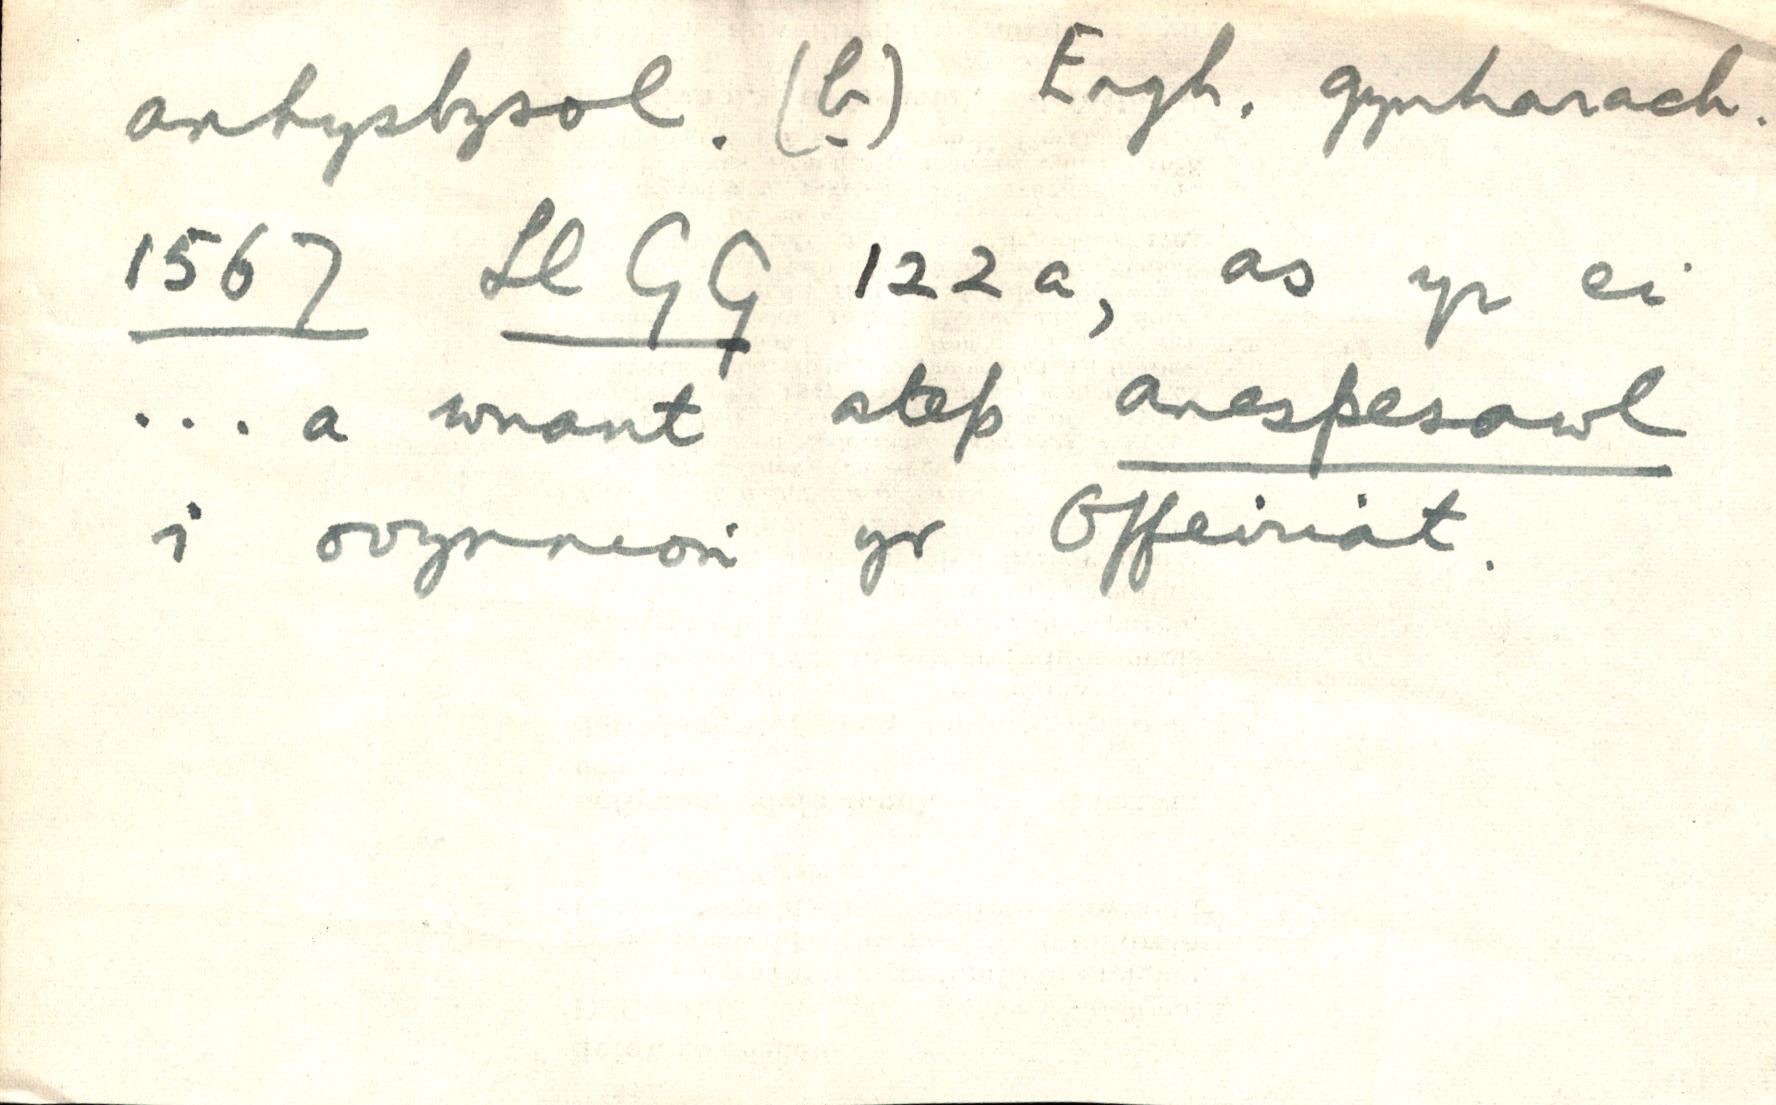 anhysbysol. (b) Engh. gynharach.
1567 Ll GG 122a, as yr ei
... a wnant atep anespesawl
i ovynneon yr Offeiriat.